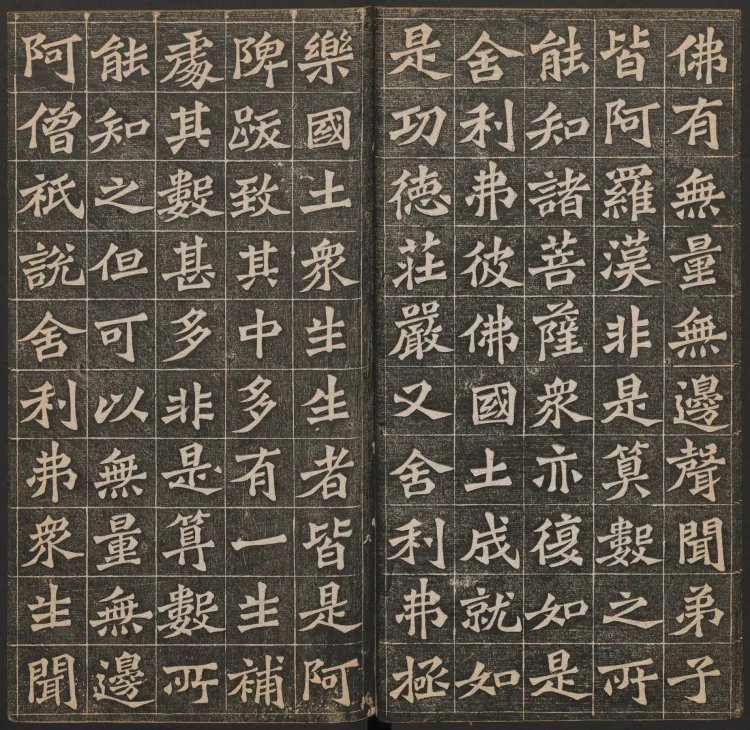 佛有無量無邊聲聞弟子
皆阿羅漢非是筭數之所
能知諸菩薩衆亦復如是
舍利弗彼佛國土成就如
是功德莊嚴又舍利弗極
樂國土衆生生者皆是阿
鞞跋致其中多有一生補
處其數甚多非是算數所
能知之但可以無量無邊
阿僧祇說舍利弗衆生聞